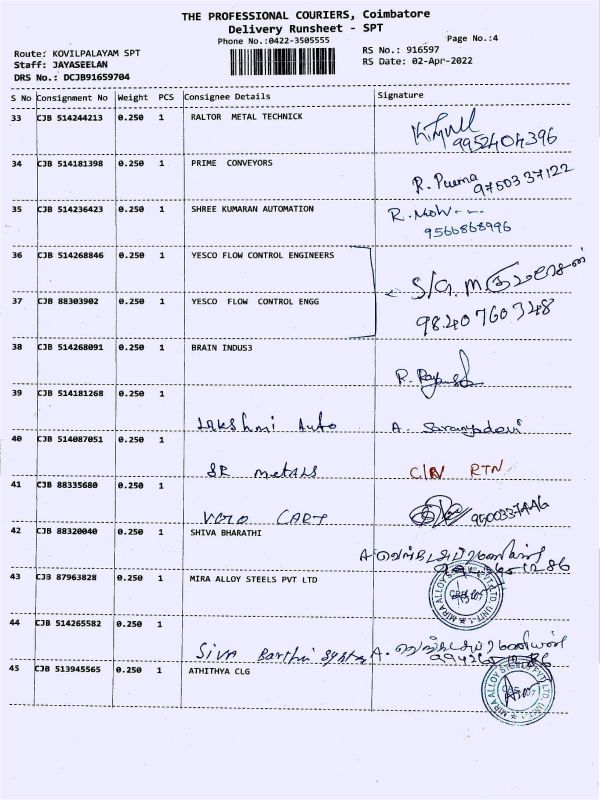 THE PROFESSIONAL COURIERS, Coimbatore
Delivery Runsheet - SPT
Phone No.:0422-3505555
Page No.:4
Route: KOVILPALAYAM SPT
RS No.: 916597
Staff: JAYASEELAN
RS Date: 02-Apr-2022
DRS No.: DCJB91659704
S No Consignment No Weight PCS Consignee Details Signature
33 CJB 514244213 0.250 1 RALTOR METAL TECHNICK
9952404396
34 CJB 514181398 0.250 1 PRIME CONVEYORS
R. Purna 9750337122
35 CJB 514236423 0.250 1 SHREE KUMARAN AUTOMATION R. Moh
9566868996
36 CJB 514268846 0.250 1 YESCO FLOW CONTROL ENGINEERS
S/G. M
37 CJB 88303902 0.250 1 YESCO FLOW CONTROL ENGG
9840760348
38 CJB 514268091 0.250 1 BRAIN INDUS3
39 CJB 514181268 0.250 1
Lakshmi Auto A. Saranyadevi
40 CJB 514087051 0.250 1
SR metals C/N RTN
41 CJB 88335680 0.250 1
VOTO CART
42 CJB 88320040 0.250 1 SHIVA BHARATHI
43 CJB 87963828 0.250 1 MIRA ALLOY STEELS PVT LTD
44 CJB 514265582 0.250 1
Siva Barthi
45 CJB 513945565 0.250 1 ATHITHYA CLG